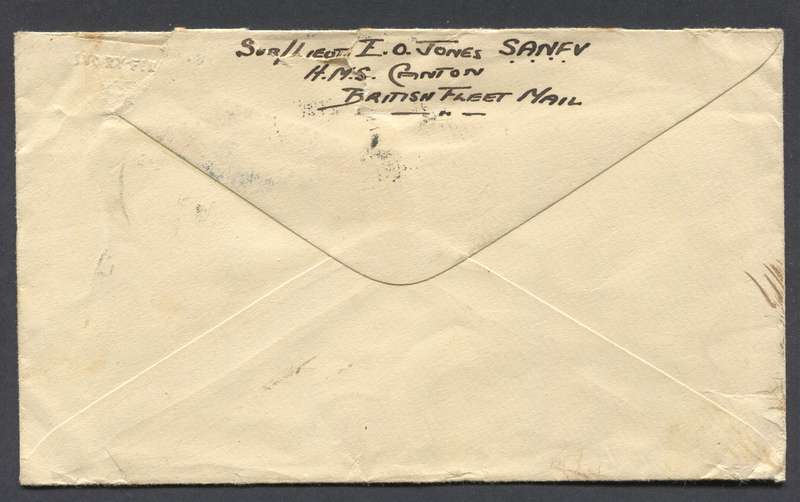 SUB/LIEUT. E. O. JONES S.A.N.F.V
H.M.S. CANTON
BRITISH FLEET MAIL